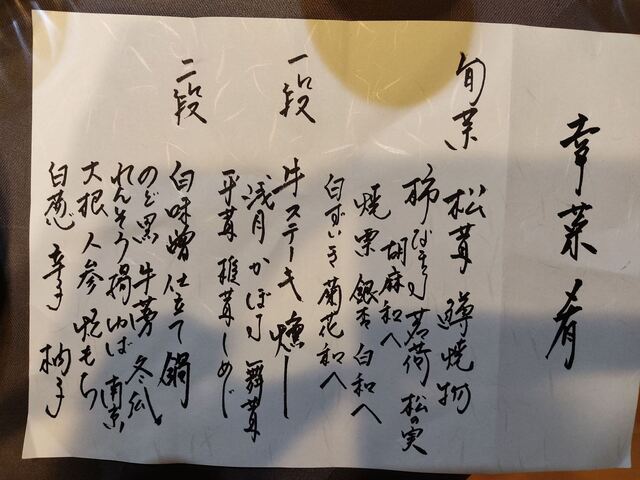 幸菜肴
旬菜
松茸 鱒焼物
柿なます 茗荷 松の実
胡麻和へ
焼栗 銀杏 白和へ
白ずいき 菊花和へ
一段
牛ステーキ 燻し
浅月 かぼす 舞茸
平茸 椎茸 しめじ
二段
白味噌仕立て鍋
のど黒 牛蒡 冬瓜
れんそう 揚ゆば 南京
大根 人参 焼もち
白葱 辛子 柚子